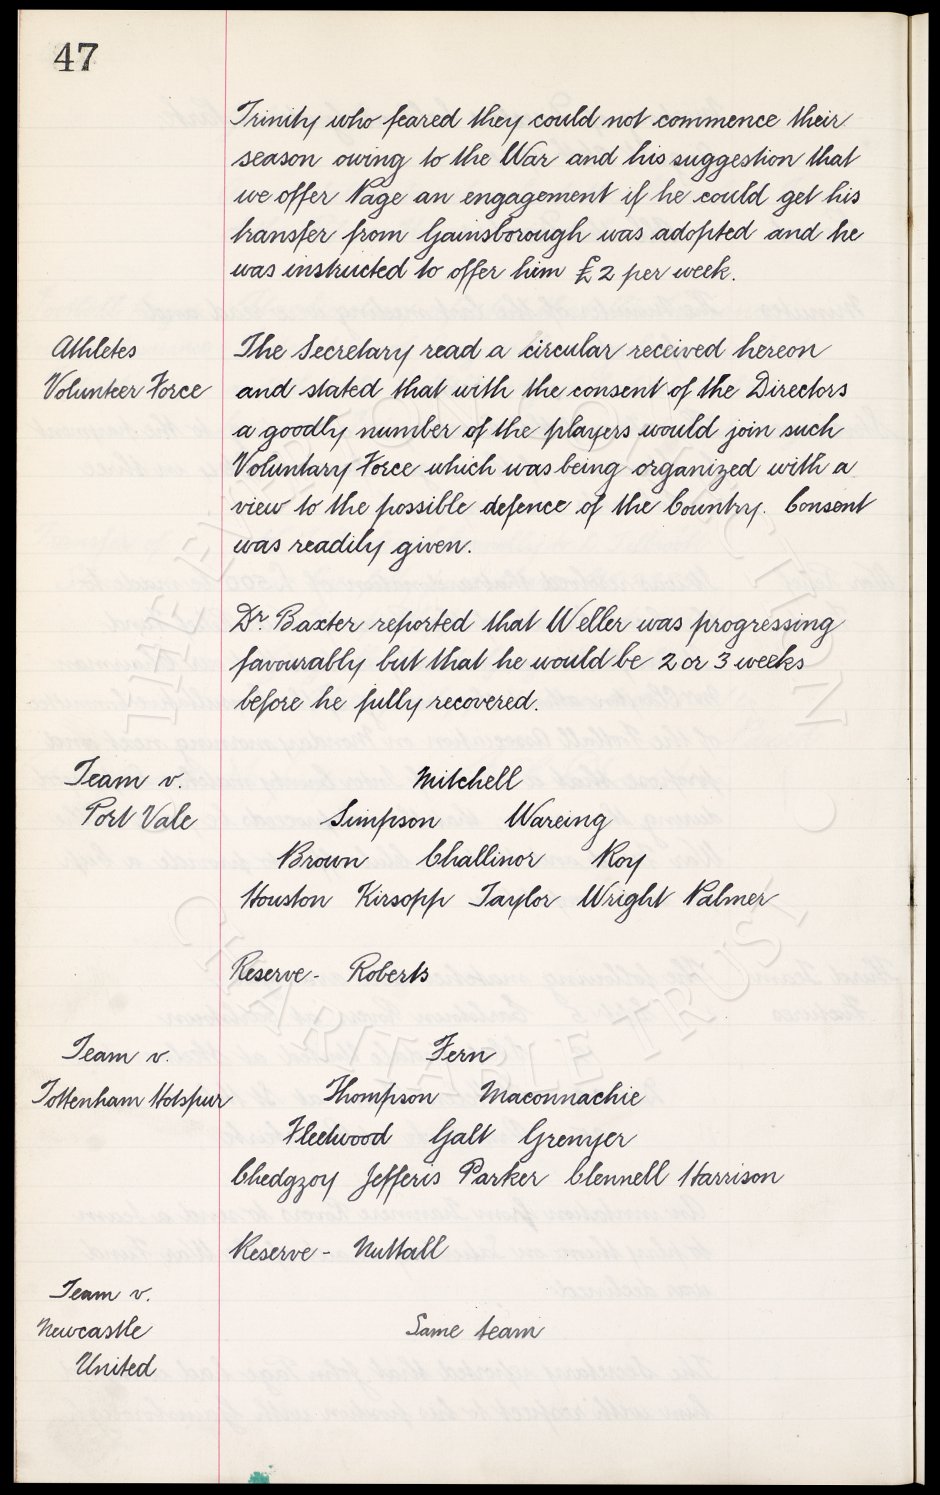 47
Trinity who feared they could not commence their
season owing to the War and his suggestion that
we offer Page an engagement if he could get his
transfer from Gainsborough was adopted and he
was instructed to offer him £2 per week.
Athletes
Volunteer Force
The Secretary read a circular received hereon
and stated that with the consent of the Directors
a goodly number of the players would join such
Voluntary Force which was being organized with a
view to the possible defence of the Country. Consent
was readily given.
Dr. Baxter reported that Weller was progressing
favourably but that he would be 2 or 3 weeks
before he fully recovered.
Team v.
Port Vale
Mitchell
Simpson Wareing
Brown Challinor Roy
Houston Kirsopp Taylor Wright Palmer
Reserve - Roberts
Team v.
Tottenham Hotspur
Fern
Thompson Maconnachie
Fleetwood Galt Grenyer
Chedgzoy Jefferis Parker Clennell Harrison
Reserve - Nuttall
Team v.
Newcastle
United
Same team
THE EVERTON COLLECTION
CHARITABLE TRUST